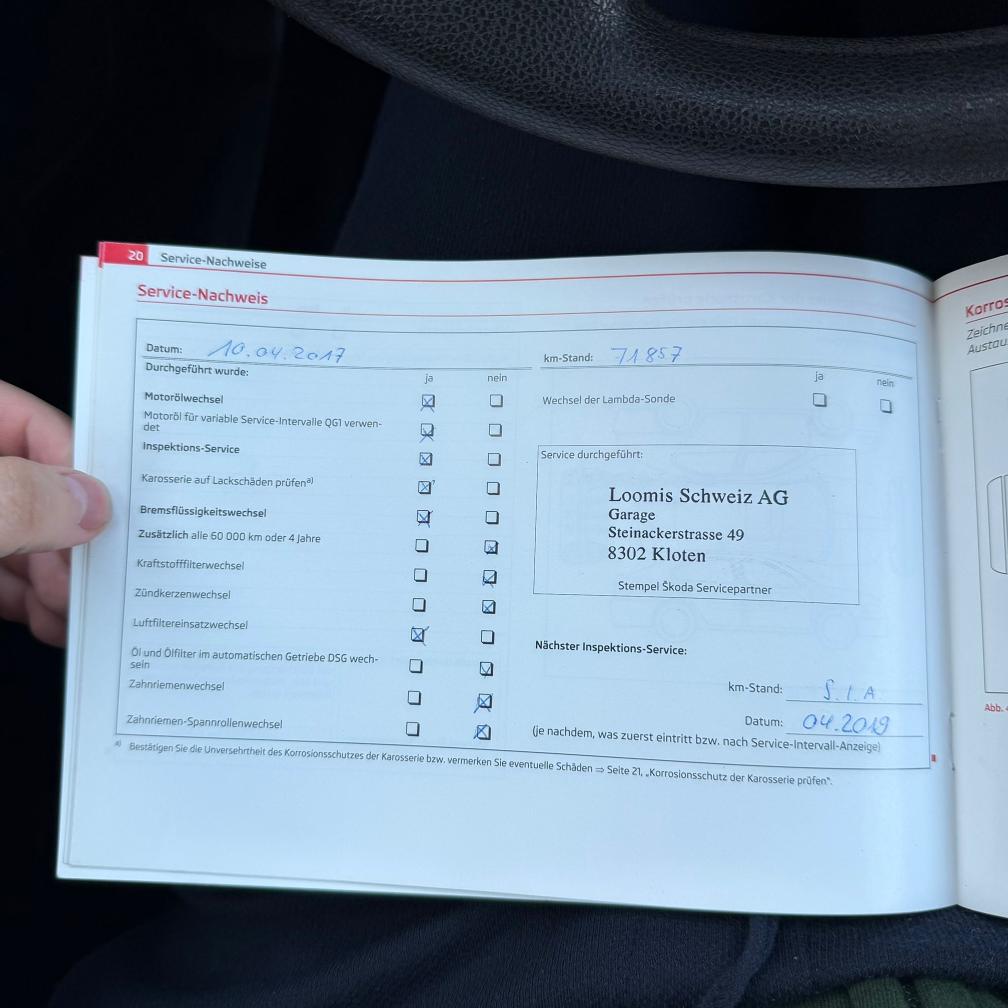 20 Service-Nachweise
Service-Nachweis
Datum: 10.04.2017
km-Stand: 71857
Durchgeführt wurde:
ja nein
ja nein
Motorölwechsel
Wechsel der Lambda-Sonde
Motoröl für variable Service-Intervalle QG1 verwen-
det
Inspektions-Service
Karosserie auf Lackschäden prüfena)
Bremsflüssigkeitswechsel
Zusätzlich alle 60 000 km oder 4 Jahre
Kraftstofffilterwechsel
Zündkerzenwechsel
Luftfiltereinsatzwechsel
Öl und Ölfilter im automatischen Getriebe DSG wech-
seln
Zahnriemenwechsel
Zahnriemen-Spannrollenwechsel
Service durchgeführt:
Loomis Schweiz AG
Garage
Steinackerstrasse 49
8302 Kloten
Stempel Škoda Servicepartner
Nächster Inspektions-Service:
km-Stand: S.I.A.
Datum: 04.2019
(je nachdem, was zuerst eintritt bzw. nach Service-Intervall-Anzeige)
a) Bestätigen Sie die Unversehrtheit des Korrosionsschutzes der Karosserie bzw. vermerken Sie eventuelle Schäden ⇒ Seite 21, „Korrosionsschutz der Karosserie prüfen“.
Korros
Zeichne
Austau
Abb.